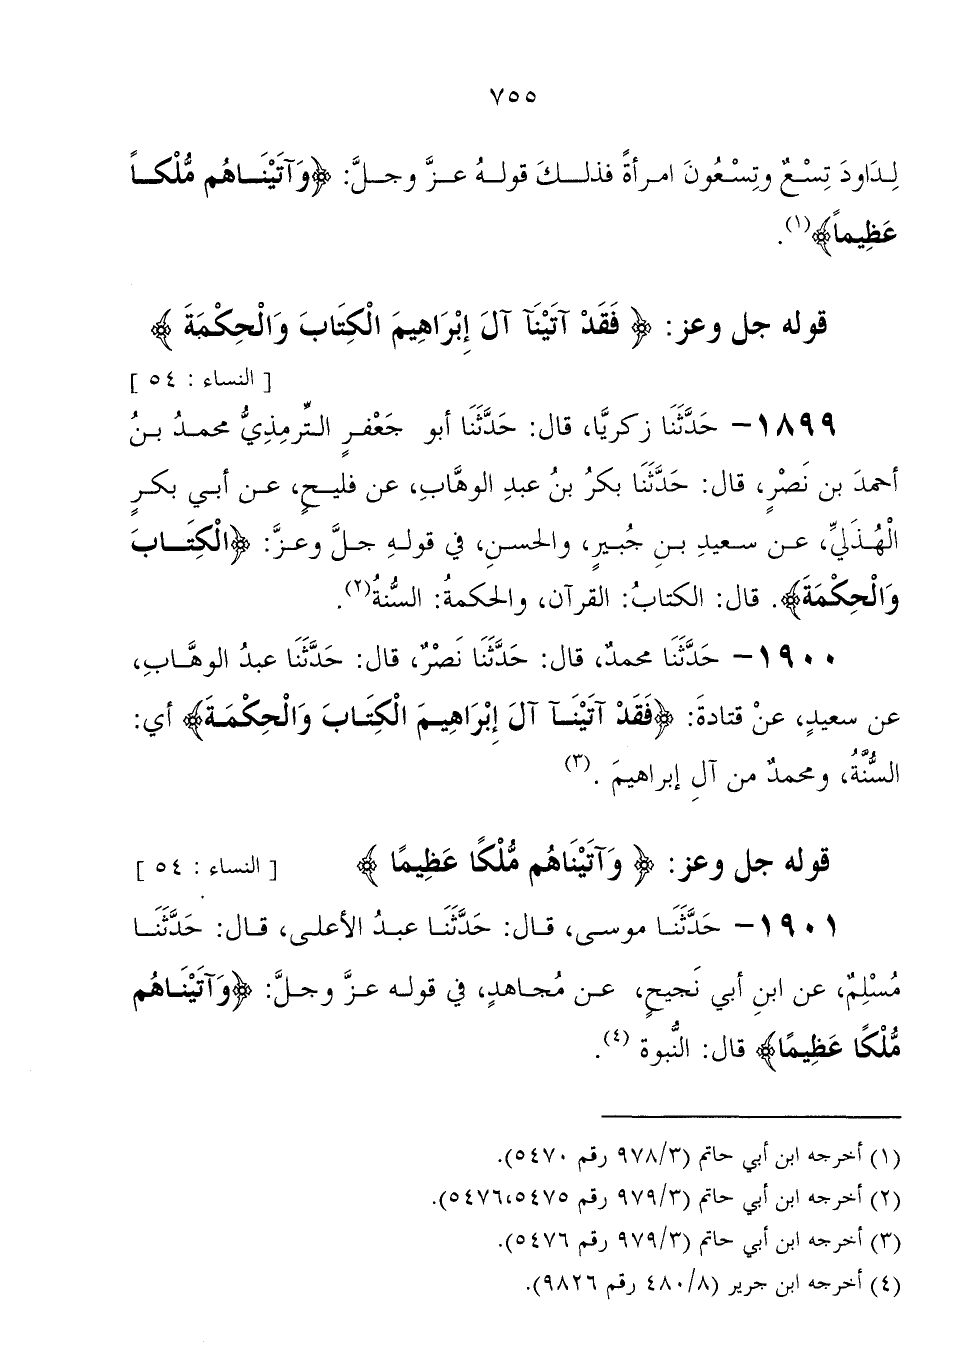 ٧٥٥
لِدَاودَ تِسْعٌ وتِسْعُونَ امرأةً فذلك قولهُ عزَّ وجلَّ: ﴿وَآتَيْنَاهُم مُّلْكاً
عَظِيماً﴾(١).
قوله جل وعز: ﴿ فَقَدْ آتَيْنَآ آلَ إِبْرَاهِيمَ الْكِتَابَ وَالْحِكْمَةَ ﴾
[ النساء : ٥٤ ]
١٨٩٩- حَدَّثَنَا زكريَّا، قال: حَدَّثَنَا أبو جَعْفرٍ التِّرمِذيُّ محمدُ بنُ
أحمدَ بن نَصْرٍ، قال: حَدَّثَنَا بكرُ بنُ عبدِ الوهَّابِ، عن فليحٍ، عن أبي بكرٍ
الْهُذَليِّ، عن سعيدِ بنِ جُبيرٍ، والحسنِ، في قولهِ جلَّ وعزَّ: ﴿الْكِتَابَ
وَالْحِكْمَةَ﴾. قال: الكتابُ: القرآن، والحكمةُ: السُّنةُ(٢).
١٩٠٠- حَدَّثَنَا محمدٌ، قال: حَدَّثَنَا نَصْرٌ، قال: حَدَّثَنَا عبدُ الوهَّابِ،
عن سعيدٍ، عنْ قتادةَ: ﴿فَقَدْ آتَيْنَآ آلَ إِبْرَاهِيمَ الْكِتَابَ وَالْحِكْمَةَ﴾ أي:
السُّنَّةُ، ومحمدٌ من آلِ إبراهيمَ .(٣)
قوله جل وعز: ﴿ وَآتَيْنَاهُم مُّلْكًا عَظِيمًا ﴾ [ النساء : ٥٤ ]
١٩٠١- حَدَّثَنَا موسى، قال: حَدَّثَنَا عبدُ الأعلى، قال: حَدَّثَنَا
مُسْلِمٌ، عن ابنِ أبي نَجيحٍ، عن مُجاهدٍ، في قوله عزَّ وجلَّ: ﴿وَآتَيْنَاهُم
مُّلْكًا عَظِيمًا﴾ قال: النُّبوة (٤).
(١) أخرجه ابن أبي حاتم (٩٧٨/٣ رقم ٥٤٧٠).
(٢) أخرجه ابن أبي حاتم (٩٧٩/٣ رقم ٥٤٧٥،٥٤٧٦).
(٣) أخرجه ابن أبي حاتم (٩٧٩/٣ رقم ٥٤٧٦).
(٤) أخرجه ابن جرير (٤٨٠/٨ رقم ٩٨٢٦).